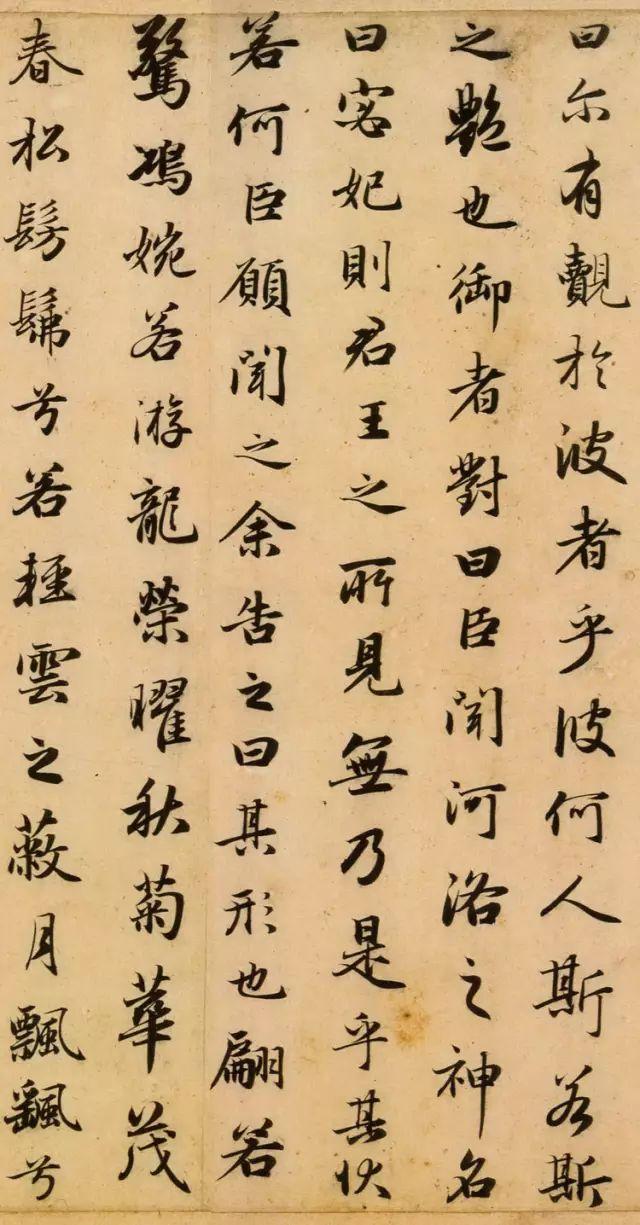 曰尔有觌於彼者乎彼何人斯若斯
之艷也御者對曰臣聞河洛之神名
曰宓妃則君王之所見無乃是乎其狀
若何臣願聞之余告之曰其形也翩若
驚鴻婉若游龍榮曜秋菊華茂
春松髣髴兮若輕雲之蔽月飄颻兮